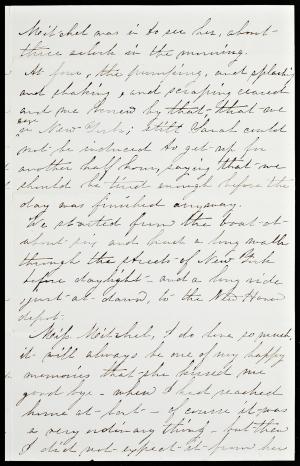 Mitchel was in to see her, about
three oclock in the morning.
At four, the pumping, and splashing
and shaking, and scraping ceased
and we knew by that, that we
were
in New York; still Sarah could
not be induced to get up for
another half hour, saying that we
should be tired enough before the
day was finished anyway.
We started from the boat at
about six and had a long walk
through the streets of New York
before daylight - and a long ride
just at dawn, to the New Haven
depot.
Miss Mitchel, I do love so much,
it will always be one of my happy
memories that she kissed me
good bye - when I had reached
home at last - of course it was
a very ordinary thing - but then
I did not expect it from her